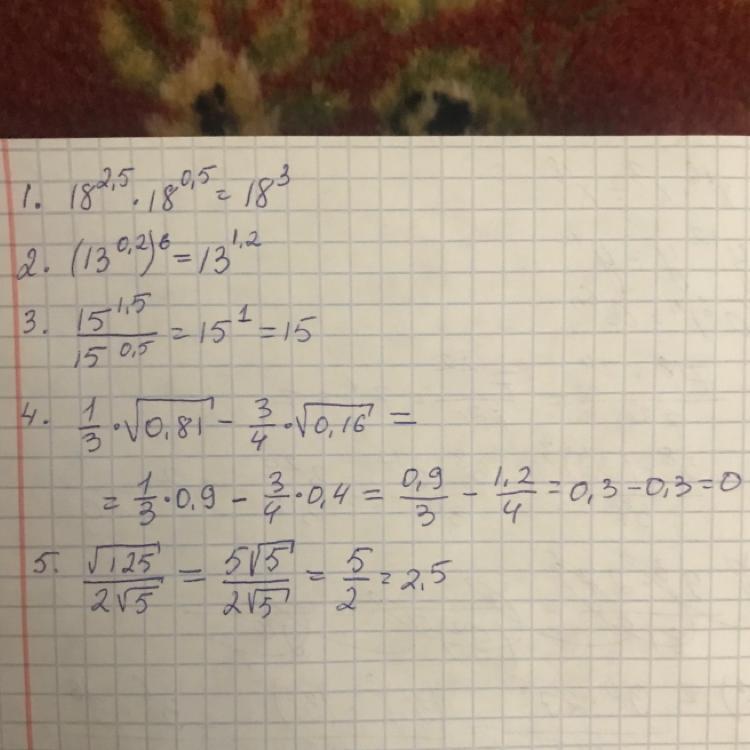 1. 18^2,5 · 18^0,5 = 18^3
2. (13^0,2)^6 = 13^1,2
3. 15^1,5 / 15^0,5 = 15^1 = 15
4. 1/3 · √0,81 − 3/4 · √0,16 =
= 1/3 · 0,9 − 3/4 · 0,4 = 0,9/3 − 1,2/4 = 0,3 − 0,3 = 0
5. √125 / 2√5 = 5√5 / 2√5 = 5/2 = 2,5